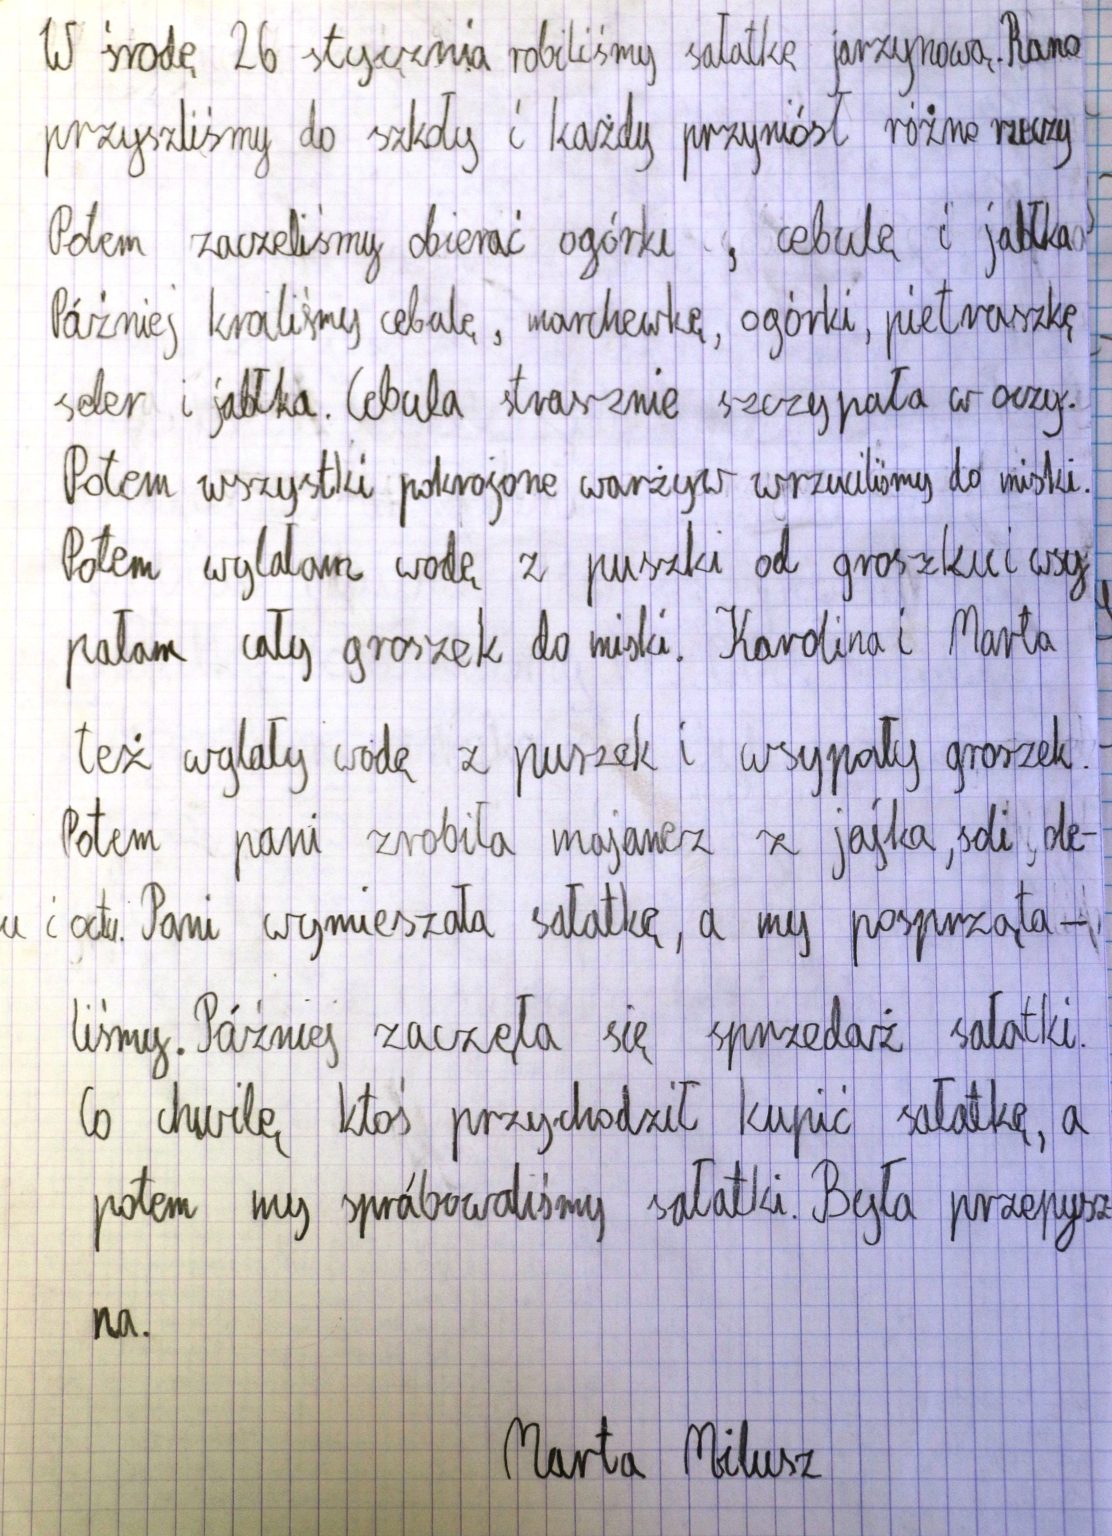 W środę 26 styczznia robiliśmy sałatkę jarzynową. Rano
przyszliśmy do szkoły i każdy przyniósł różne rzeczy
Potem zaczeliśmy obierać ogórki , cebulę i jabłka
Páżniej kroiliśmy cebulę, marchewkę, ogórki, pietraszkę
seler i jabłka. Cebula strasznie szczypała w oczy.
Potem wszystki pokrojone warżyw wrzuciliśmy do miski.
Potem wylałam wodę z puszki od groszku i wsy
pałam cały groszek do miski. Karolina i Marta
też wylały wodę z puszek i wsypały groszek.
Potem pani zrobiła majanez z jajka, soli, ole-
u i octu. Pani wymieszała sałatkę, a my posprząta-
liśmy. Páżniej zaczęła się sprzedarż sałatki.
Co chwilę ktoś przychodził kupić sałatkę, a
potem my sprábowaliśmy sałatki. Była przepysz
na.
Marta Milusz